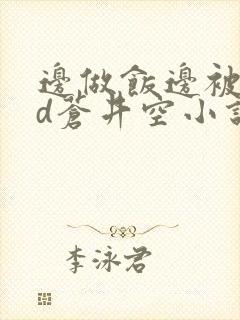 邊做飯邊被
d蒼井空小說
李泳君